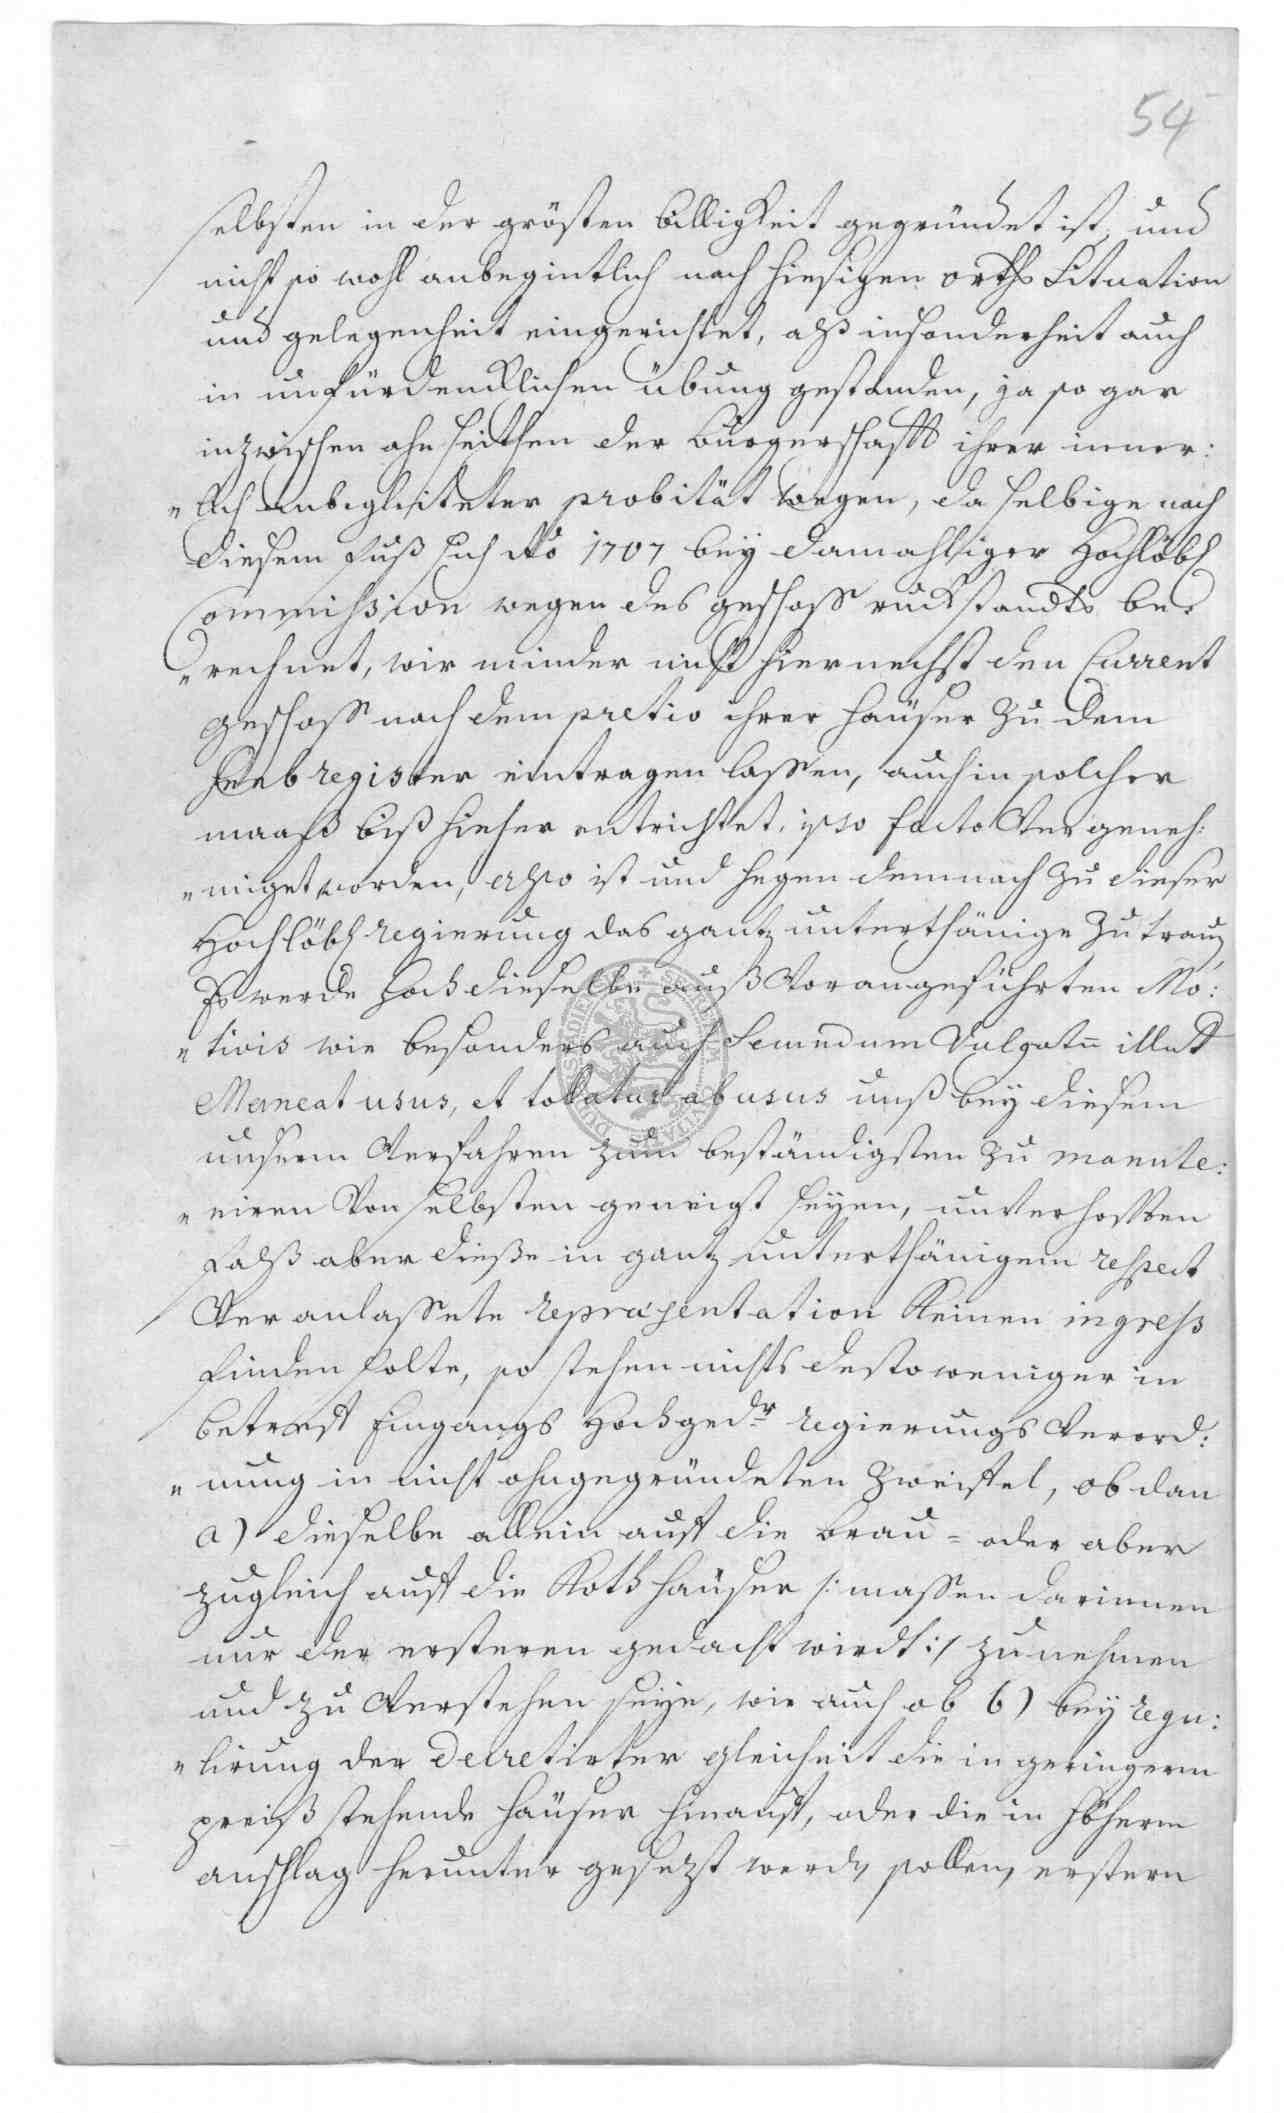 54
selbsten in der grösten billigkeit gegründet ist, und
nicht so wohl anbegintlich nach hiesigen orths Situation
und gelegenheit eingerichtet, alß insonderheit auch
in unfürdencklichen übung gestanden, ja so gar
inzwischen ohn seithen der burgerschafft ihrer inner:
"lich anbegleiteter probität wegen, da selbige nach
diesem fuß sich Ao 1707 bey damahliger Hochlöbl
Commission wegen des geschoss ruckstandts be:
"rechnet, wie minder nicht hiernechst den Current
geschoss nach dem pretio ihrer häuser zu dem
Heebregister eintragen lassen, auch in solcher
maaß biß hieher entrichtet, ipso facto Vergeneh:
"miget worden, also ist und hegen demnach zu dieser
Hochlöbl regierung das gantz unterthänige Zutrauen,
Es werde hoch dieselbe auß Vorangeführten Mo:
"tivis wie besonders auch secundum Vulgatum illud
Maneat usus, et tollatur abusus unß bey diesem
unserm Verfahren zum beständigsten zu manute:
"niren Von selbsten geneigt seyen, unverhofften
falß aber dieße in gantz unterthänigem respect
Veranlassete repræsentation Keinen ingress
finden solte, so stehen nichts destoweniger in
betreff Eingangs Hochgedr regierungs Verord:
"nung in nicht ohngegründeten Zweiffel, ob dan
a) dieselbe allein auff die brau= oder aber
zugleich auff die Koth häuser /: massen darinnen
nur der ersteren gedacht wirdt :/ zu nehmen
und zu Verstehen seye, wie auch ob b) bey regu:
"lirung der Decretirter gleicheit die in geringerm
preiß stehende häuser hinauff, oder die in höherm
anschlag herunter gesezt werden sollen, erstern